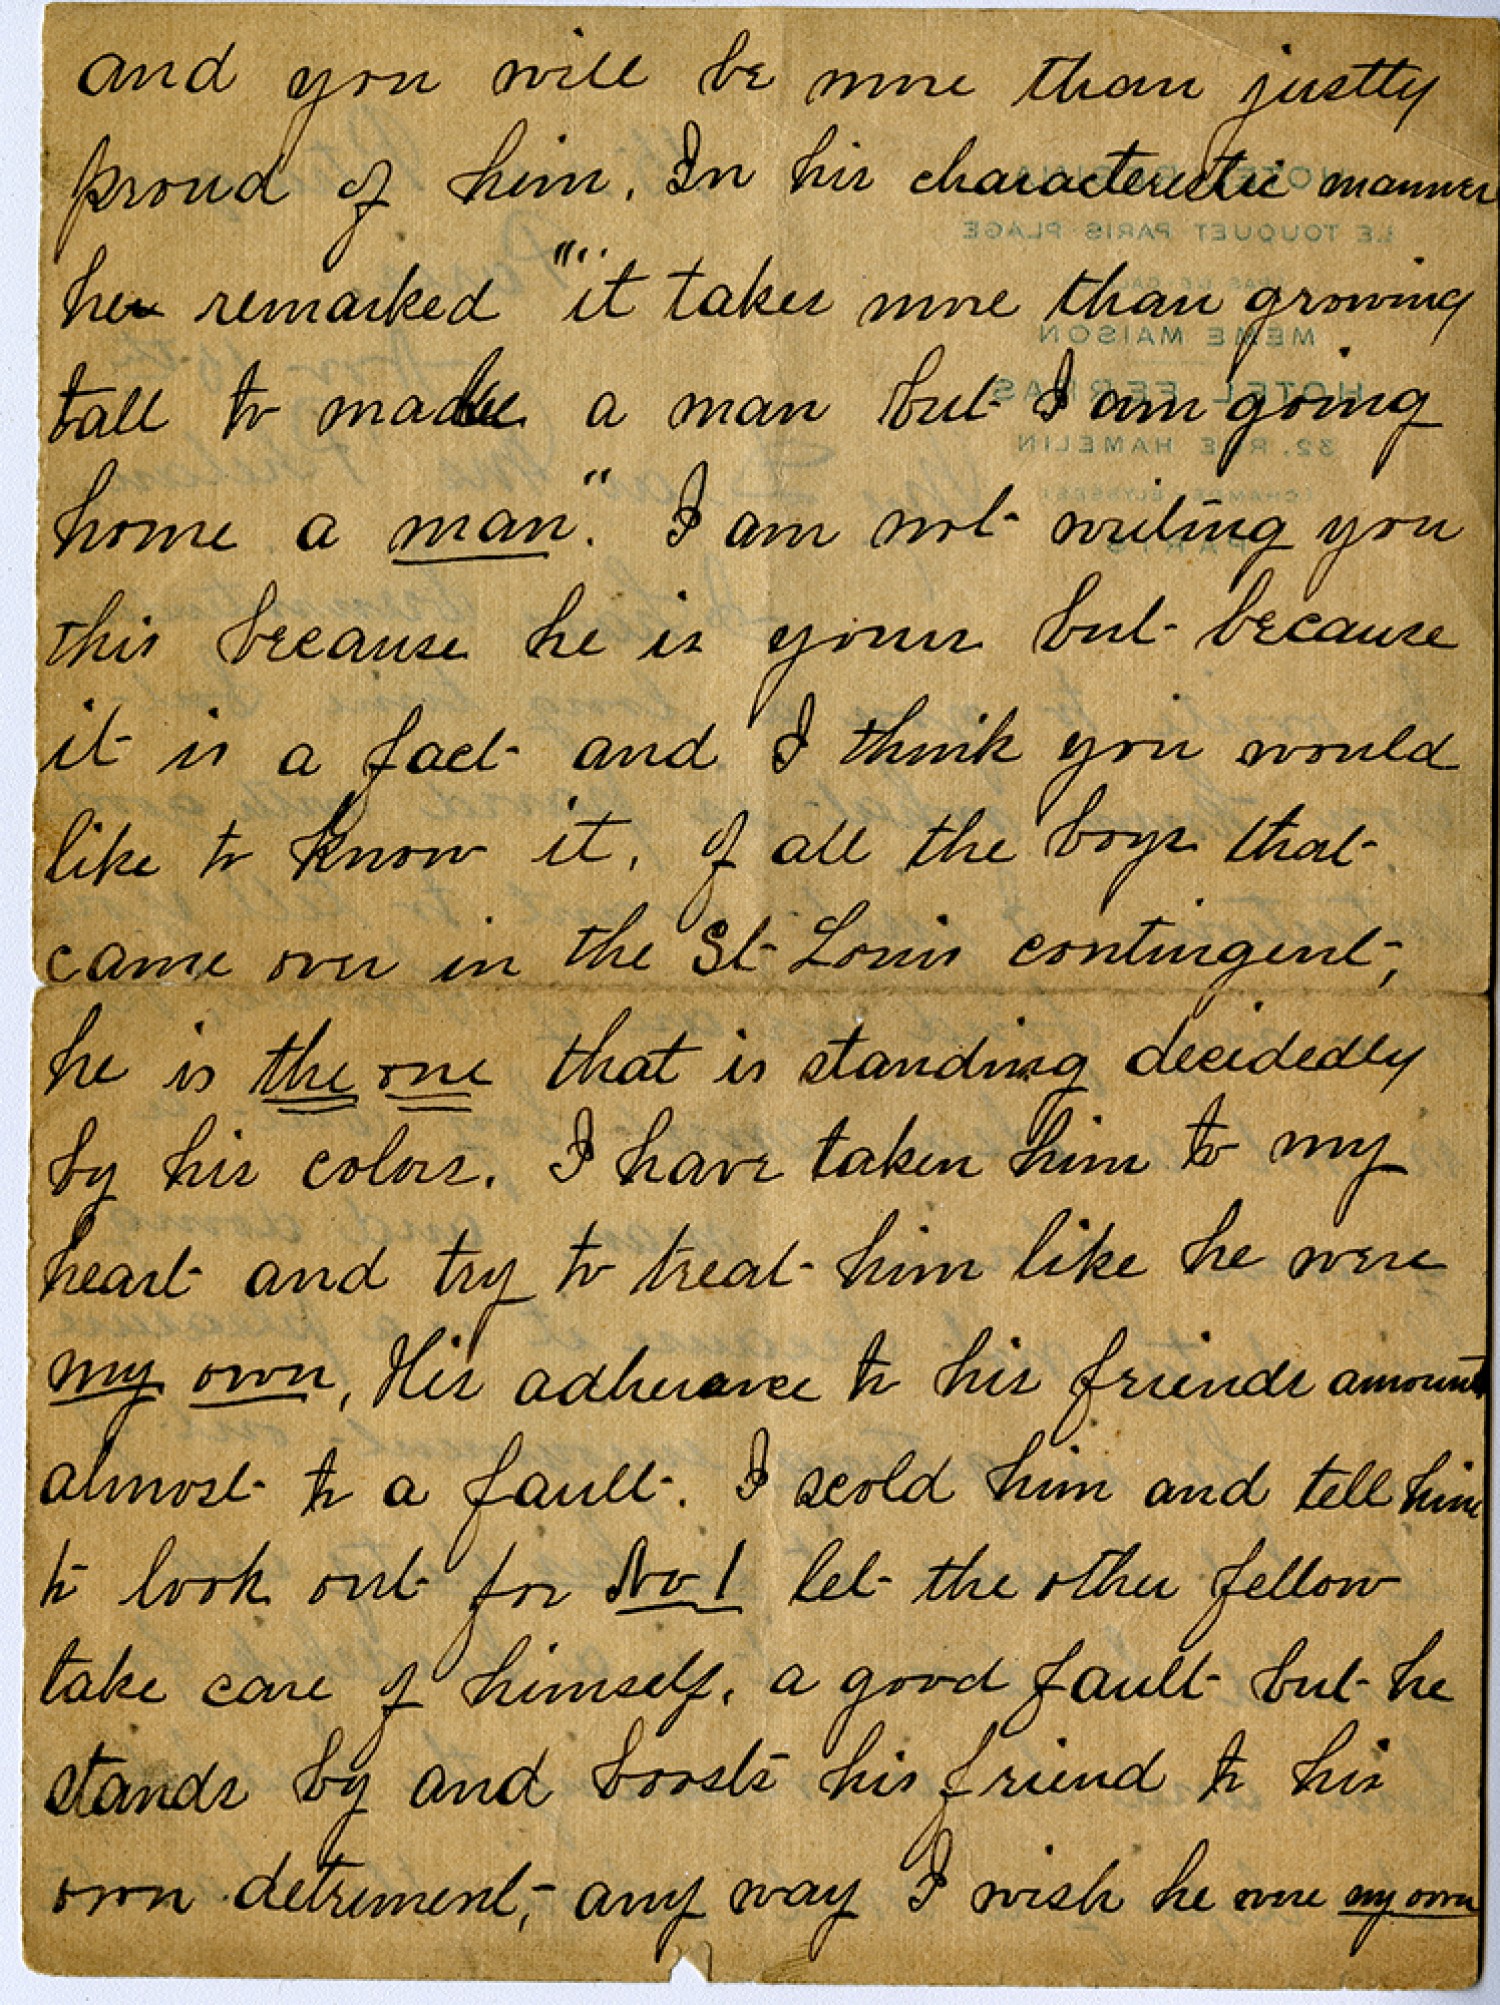 and you will be more than justly
proud of him. In his characteristic manner
he remarked "it takes more than growing
tall to make a man but I am going
home a man". I am not writing you
this because he is yours but because
it is a fact and I think you would
like to know it. of all the boys that
came over in the St Louis contingent,
he is the one that is standing decidedly
by his colors. I have taken him to my
heart and try to treat him like he were
my own. His adherance to his friends amounts
almost to a fault. I scold him and tell him
to look out for No 1 let the other fellow
take care of himself. a good fault but he
stands by and boosts his friend to his
own detriment, any way I wish he were my own
HOTEL
LE TOUQUET PARIS PLAGE
MEME MAISON
HOTEL FERRAS
32. RUE HAMELIN
(CHAMPS ELYSEES)
PARIS